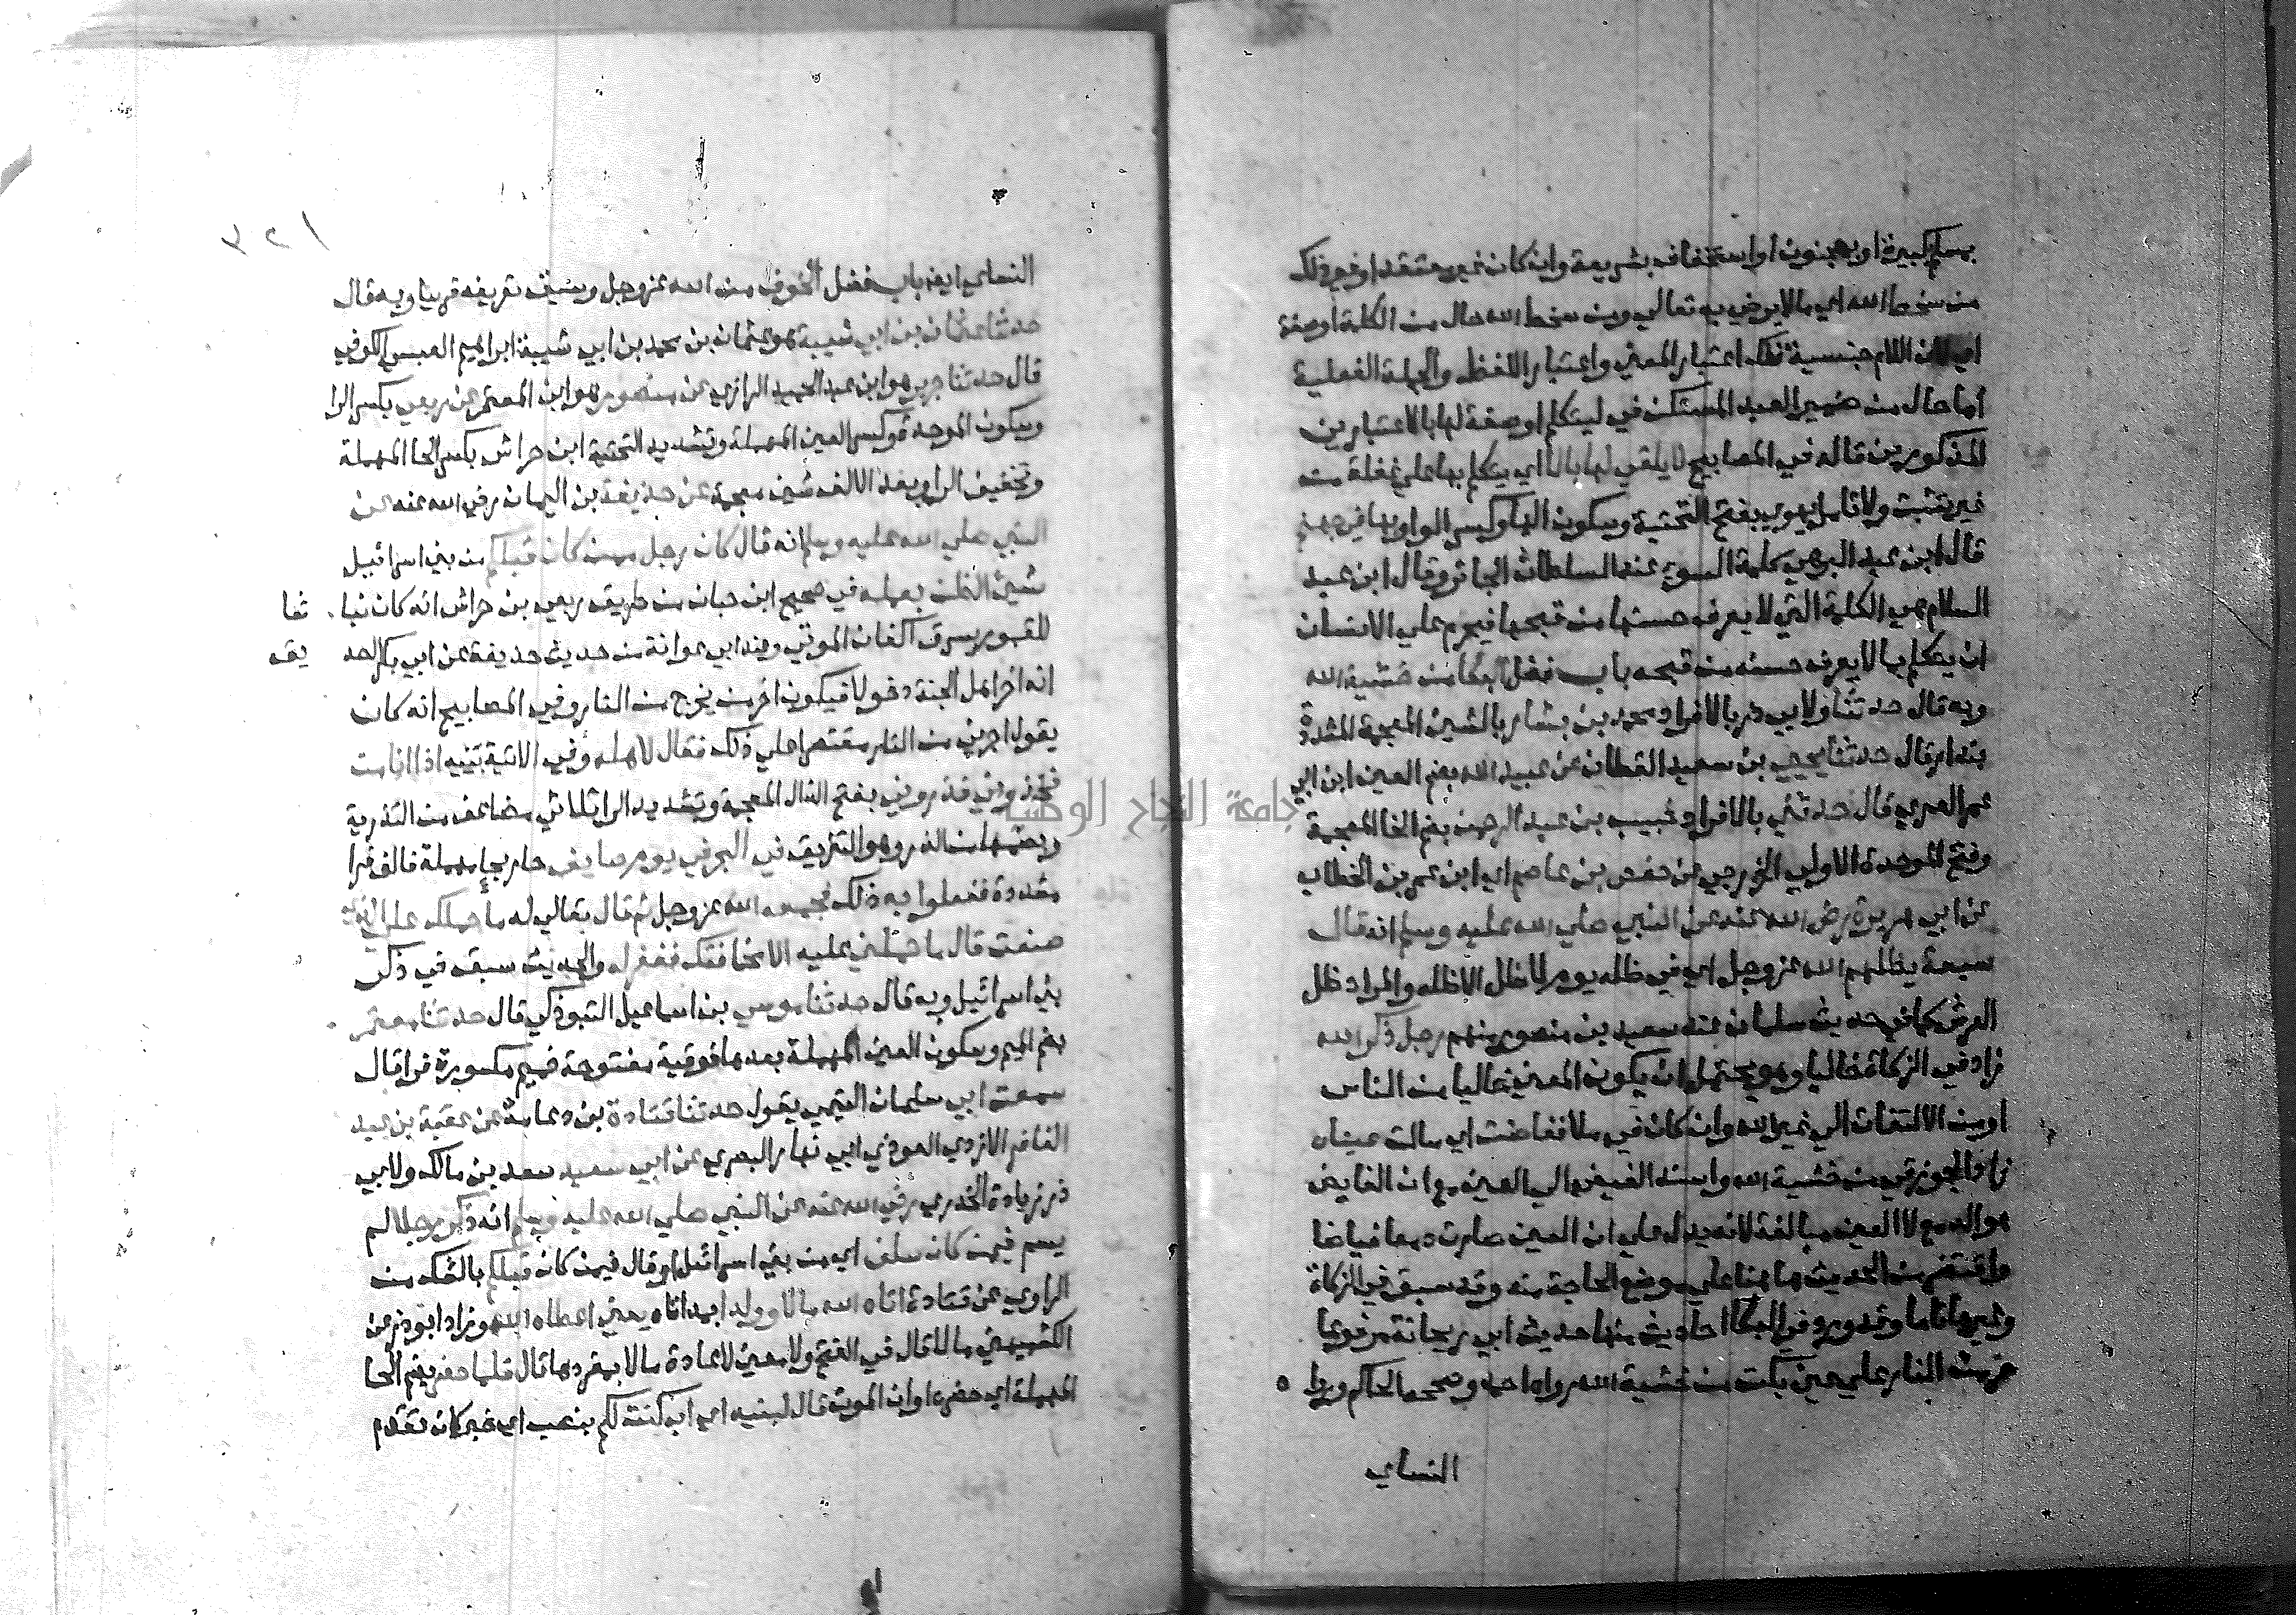 بمسلم كبيرة او بمجنون او استخفاف بشريعة وان كان غير معتقد او غير ذلك
من سخط الله اي مالا يرضي به تعالي ومن سخط الله حال من الكلمة او صفة
اي لان اللام جنسية فلك اعتبار المعني واعتبار اللفظ والجملة الفعلية
اما حال من ضمير العبد المستكن في ليتكلم او صفة لها بالاعتبارين
المذكورين قاله في المصابيح لا يلقي لها بالا اي يتكلم بها علي غفلة من
غير تثبت ولا تامل يهوي بفتح التحتية وسكون الها وكسر الواو بها في جهنم
قال ابن عبد البر هي كلمة السوء عند السلطان الجائر وقال ابن عبد
السلام هي الكلمة التي لا يعرف حسنها من قبحها فيحرم علي الانسان
ان يتكلم بما لا يعرف حسنه من قبحه باب فضل البكا من خشية الله
وبه قال حدثنا ولابي ذر بالافراد محمد بن بشار بالشين المعجمة المشددة
بندار قال حدثنا يحيي بن سعيد القطان عن عبيد الله بضم العين ابن
عمر العمري قال حدثني بالافراد خبيب بن عبد الرحمن بضم الخا المعجمة
وفتح الموحدة الاولي الخزرجي عن حفص بن عاصم اي ابن عمر بن الخطاب
عن ابي هريرة رضي الله عنه عن النبي صلي الله عليه وسلم انه قال
سبعة يظلهم الله عز وجل اي في ظله يوم لا ظل الا ظله والمراد ظل
العرش كما في حديث سلمان عند سعيد بن منصور منهم رجل ذكر الله
زاد في الزكاة خاليا وهو يحتمل ان يكون المعني خاليا من الناس
او من الالتفات الي غير الله وان كان في ملا ففاضت اي سالت عيناه
زاد الجوزقي من خشية الله واسند الفيض الي العين مع ان الفايض
هو الدمع لا العين مبالغة لانه يدل علي ان العين صارت دمعا فياضا
واقتصر من الحديث هنا علي موضع الحاجة منه وقد سبق في الزكاة
وغيرها تاما وقد ورد في البكا احاديث منها حديث ابي ريحانة مرفوعا
حرمت النار علي عين بكت من خشية الله رواه احمد وصححه الحاكم ورواه
النساي
٣٢١
النساي ايضا باب فضل الخوف من الله عز وجل وسبق تعريفه قريبا وبه قال
حدثنا عثمان بن ابي شيبة هو عثمان بن محمد بن ابي شيبة ابراهيم العبسي الكوفي
قال حدثنا جرير هو ابن عبد الحميد الرازي عن منصور هو ابن المعتمر عن ربعي بكسر الرا
وسكون الموحدة وكسر العين المهملة وتشديد التحتية ابن حراش بكسر الحا المهملة
وتخفيف الرا وبعد الالف شين معجمة عن حذيفة بن اليمان رضي الله عنه عن
النبي صلي الله عليه وسلم انه قال كان رجل ممن كان قبلكم من بني اسرائيل
يسئ الظن بعمله في صحيح ابن حبان من طريق ربعي بن حراش انه كان نبا شا
للقبور يسرق اكفان الموتي وعند ابي عوانة من حديث حذيفة عن ابي بكر الصد يق
انه اخر اهل الجنة دخولا فيكون اخر من يخرج من النار وفي المصابيح انه كان
يقول اجرني من النار مقتصرا علي ذلك فقال لاهله وفي الاتية بنيه اذا انا مت
فخذوني فذروني بفتح الذال المعجمة وتشديد الرا ثلاثي مضاعف من التذرية
وبضمها من الذر وهو التفريق في البحر في يوم صايف حار بحا مهملة فالف فرا
مشددة ففعلوا به ذلك فجمعه الله عز وجل ثم قال تعالي له ما حملك علي الذي
صنعت قال ما حملني عليه الا مخافتك فغفر له والحديث سبق في ذكر
بني اسرائيل وبه قال حدثنا موسي بن اسماعيل التبوذكي قال حدثنا معتمر
بضم الميم وسكون العين المهملة بعدها فوقية مفتوحة فميم مكسورة فرا قال
سمعت ابي سليمان التيمي يقول حدثنا قتادة بن دعامة عن عقبة بن عبد
الغافر الازدي العوذي ابي نهار البصري عن ابي سعيد سعد بن مالك ولابي
ذر زيادة الخدري رضي الله عنه عن النبي صلي الله عليه وسلم انه ذكر رجلا لم
يسم فيمن كان سلف اي من بني اسرائيل او قال فيمن كان قبلكم بالشك من
الراوي عن قتادة اتاه الله مالا وولدا بمد اتاه يعني اعطاه الله وزاد ابو ذر عن
الكشميهني مالا قال في الفتح ولا معني لاعادة مالا بمفردها قال فلما حضر بضم الحا
المهملة اي حضره اوان الموت قال لبنيه اي اب كنت لكم بنصب اي خبر كان تقدم